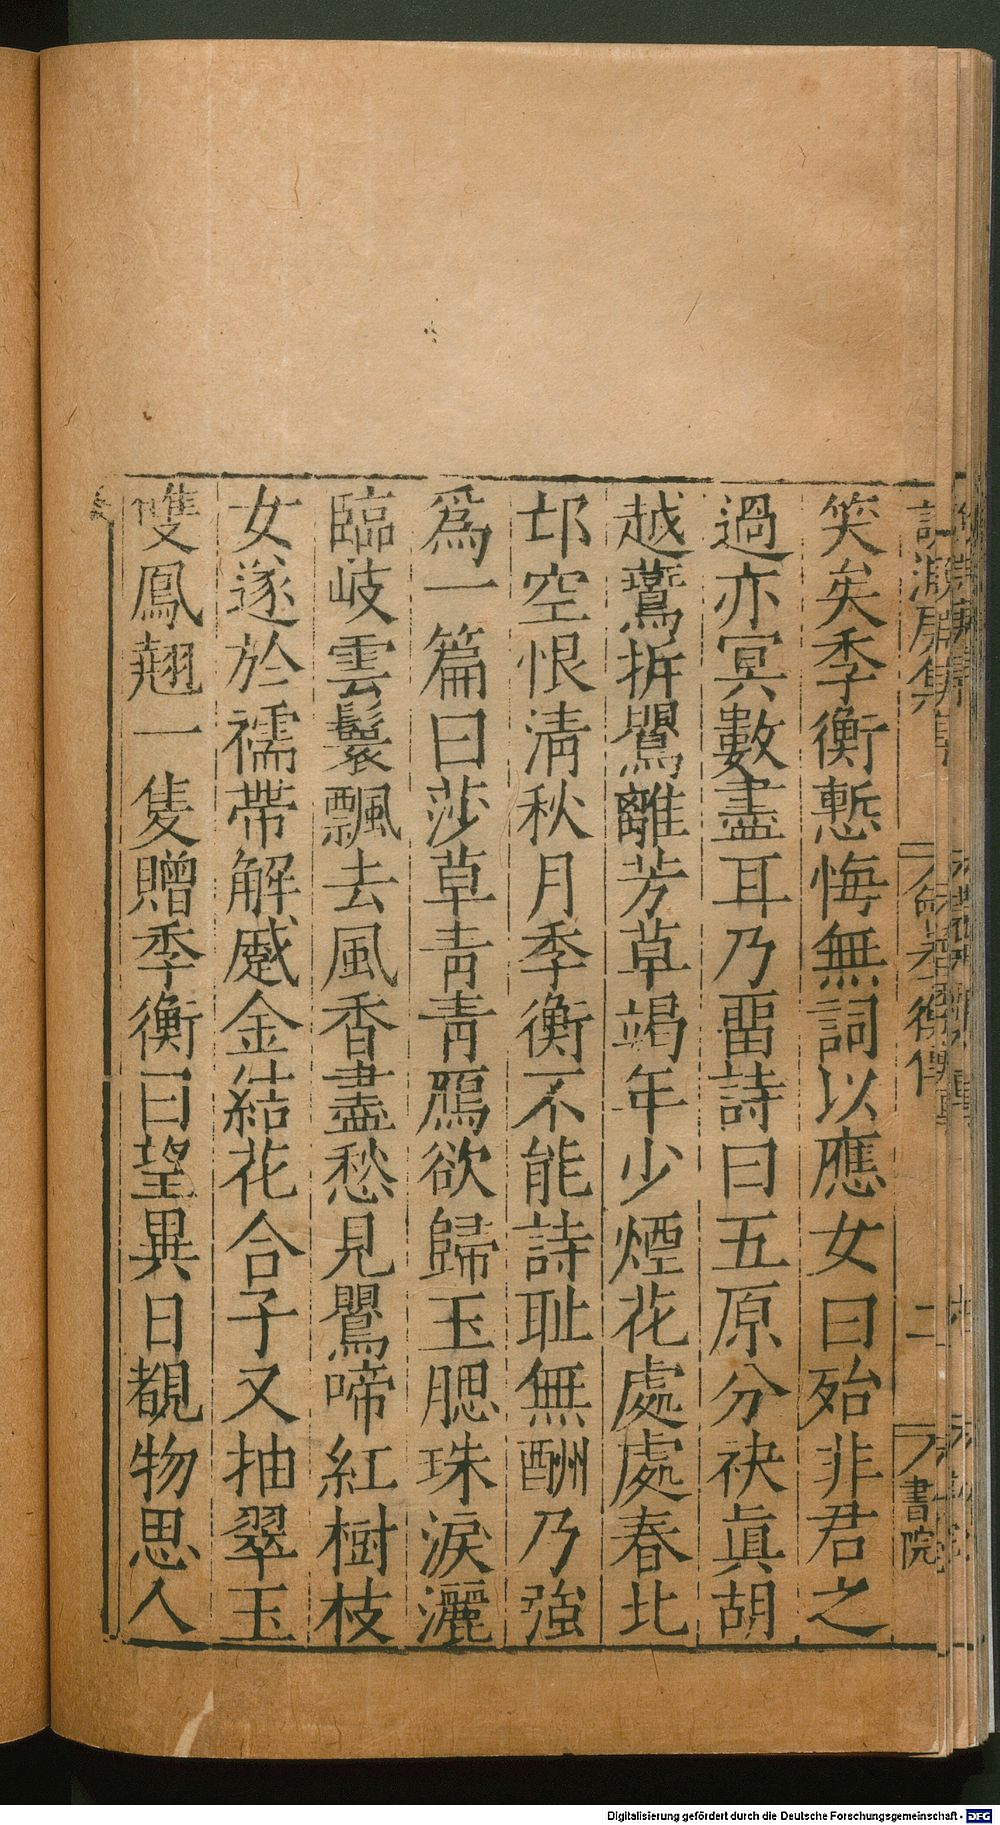 笑矣季衡慙悔無詞以應女曰殆非君之
過亦冥數盡耳乃畱詩曰五原分袂眞胡
越鷰拆鸎離芳草竭年少煙花處處春北
邙空恨淸秋月季衡不能詩耻無酬乃強
爲一篇曰莎草青青鴈欲歸玉腮珠淚灑
臨岐雲鬟飄去風香盡愁見鸎啼紅樹枝
女遂於襦帶解蹙金結花合子又抽翠玉
雙鳳翹一隻贈季衡曰望異日覩物思人
二
書院
Digitalisierung gefördert durch die Deutsche Forschungsgemeinschaft - DFG